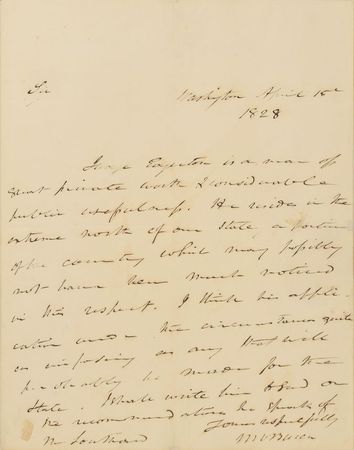 Sir
Washington April 18
1828
Edgerton is a man of
great private worth & considerable
public usefulness. He resides in the
extreme north of our State, a portion
of the country which may possibly
not have been much noticed
in this respect. I think his appli-
cation under the circumstances quite
as imposing as any that will
probably be made for the
State. I shall write him
he recommendations he speaks of
Mr Southard
Yours respectfully
M V Buren